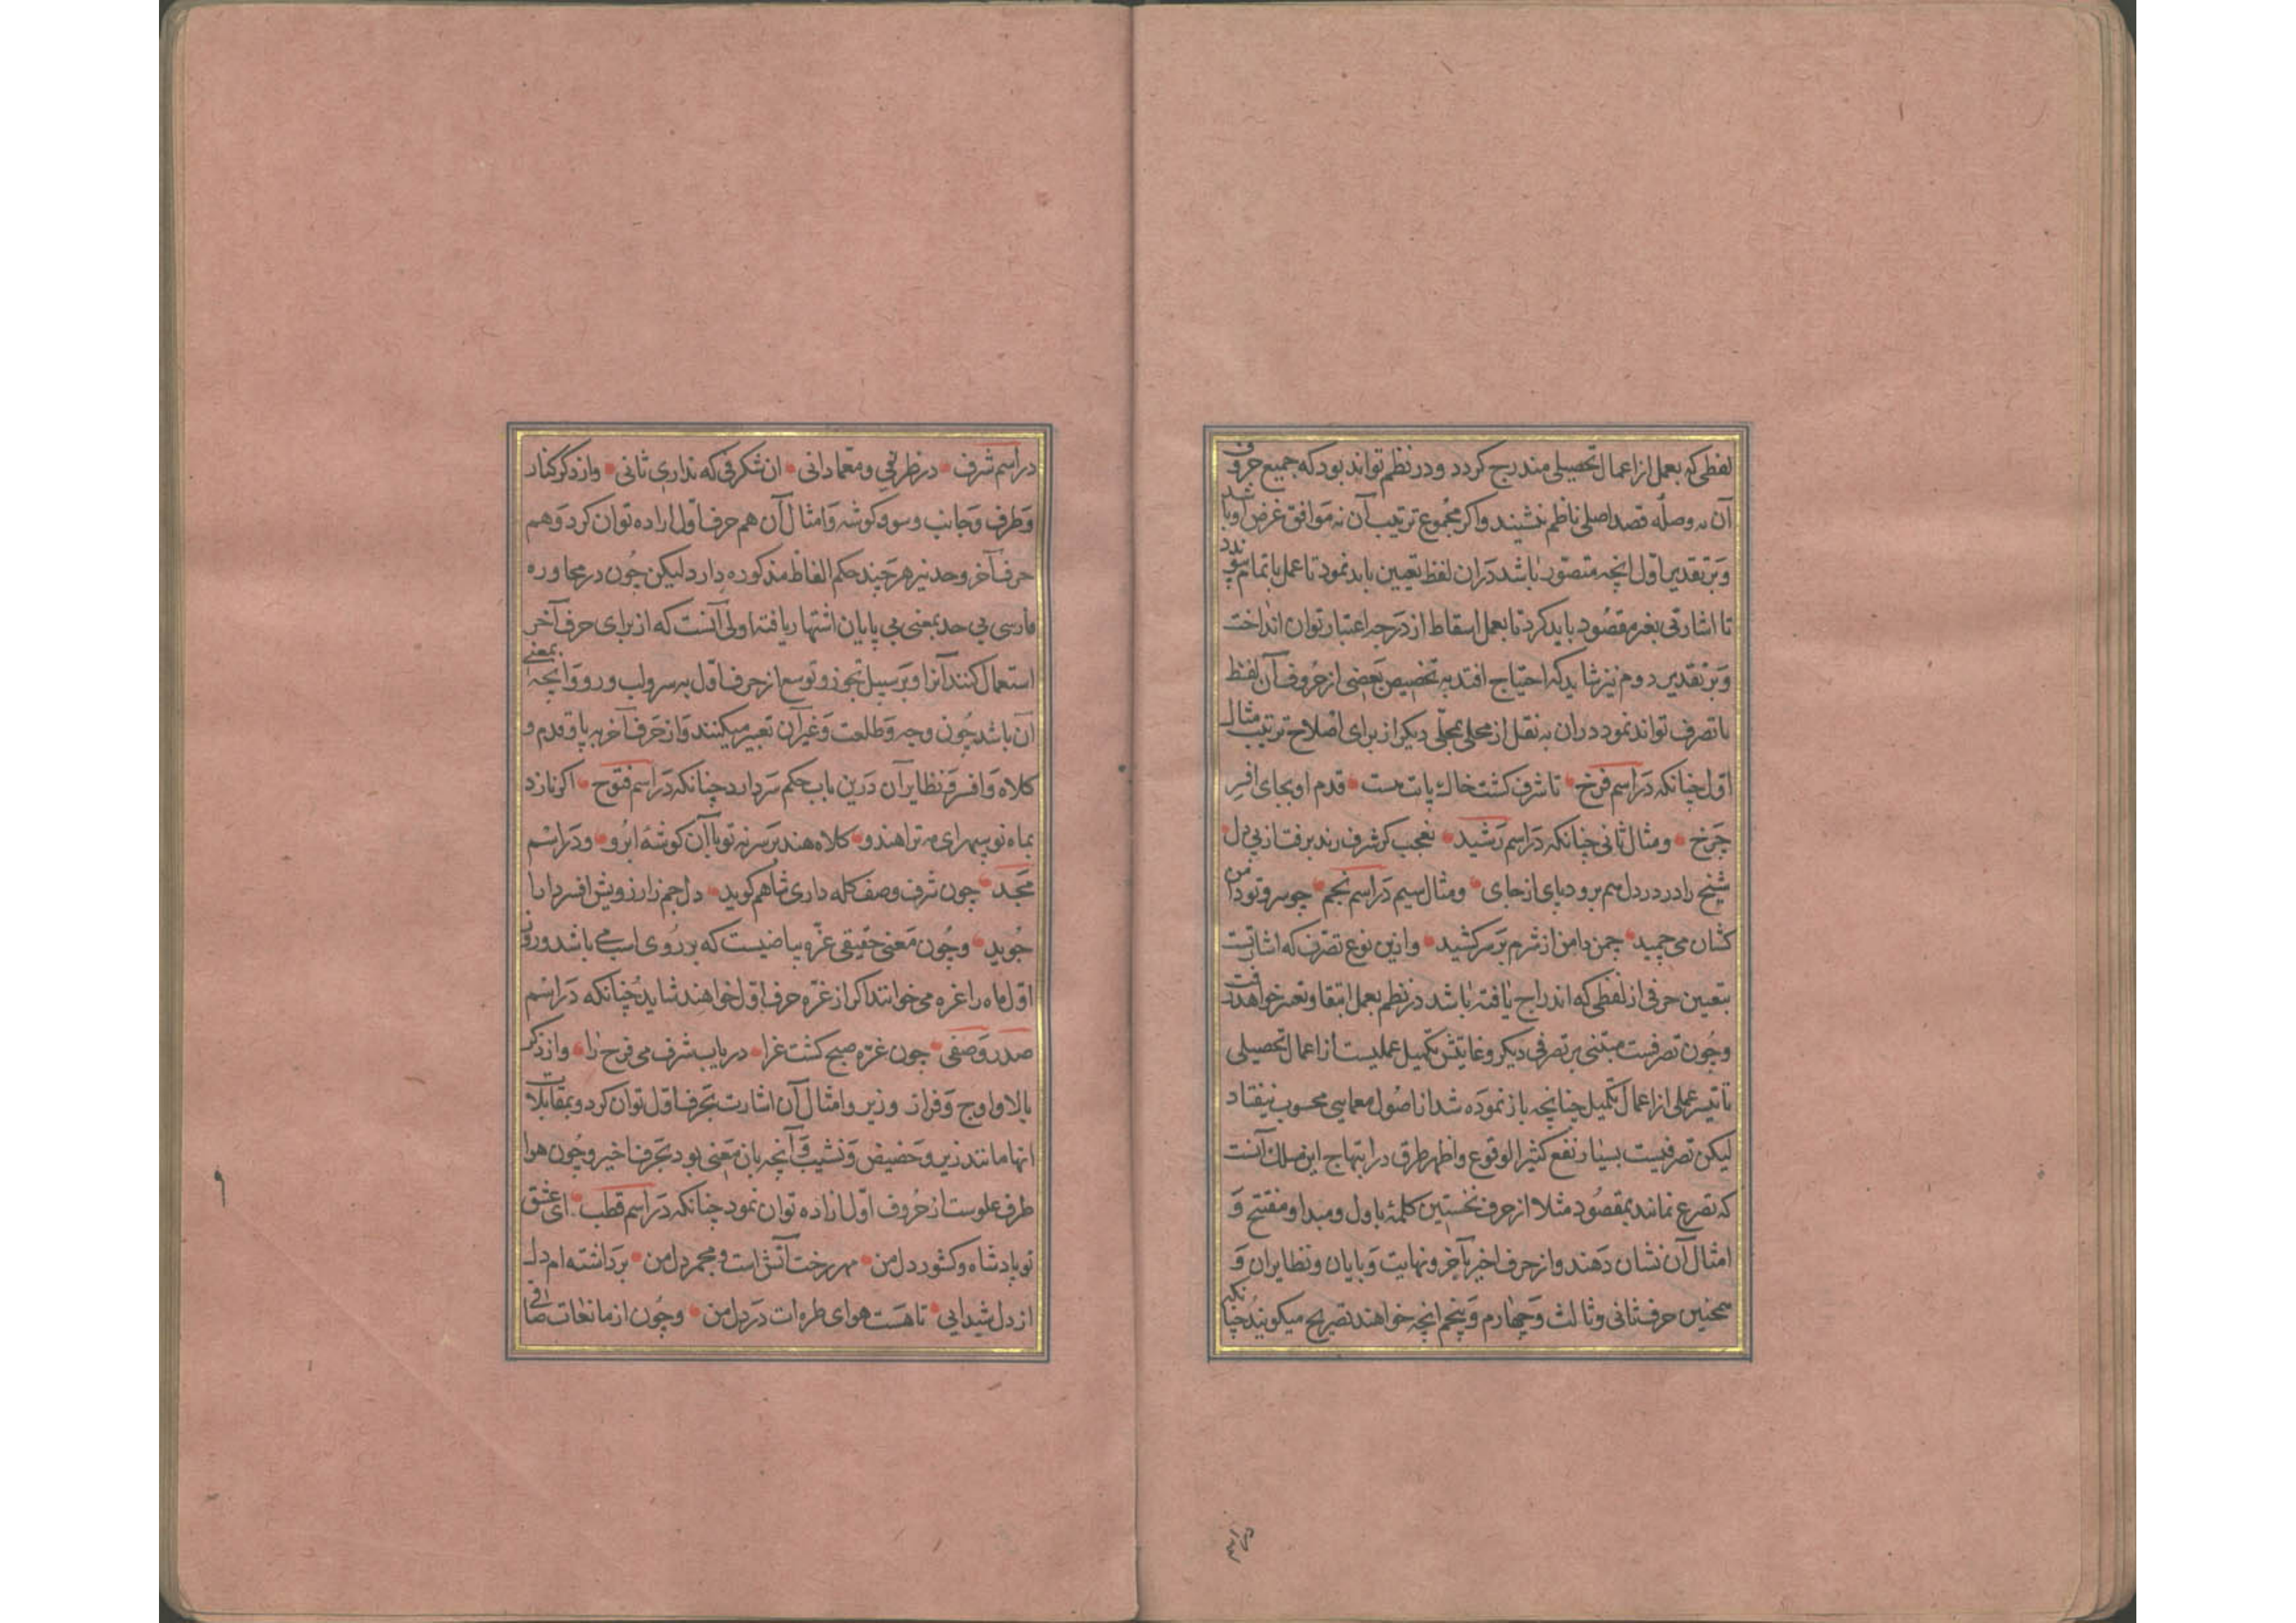 لفظی که بعمل از اعمال تحصیلی مندرج کردد و در نظم تواند بود که جمیع حروف
آن به وصله قصد اصلی ناظم نشیند واکر مجموع ترتیب آن نه موافق غرض او باشد
وبر تقدیر اول انچه متصور باشد دران لفظ تعیین باید نمود تا عمل باتمام پیوندد
تا اشارتی بغیر مقصود باید کرد تا بعمل اسقاط از درجه اعتبار توان انداخت
وبر تقدیر دوم نیز شاید که احتیاج افتد به تخصیص بعضی از حروف آن لفظ
یا تصرف تواند نمود دران به نقل از محلی بمحلی دیکر از برای اصلاح ترتیب مثال
اول چنانکه در اسم فرخ تا شرف کشت خاک پایت مست قدم او بجای افسر
چرخ ومثال ثانی چنانکه در اسم رشید نعجب کر شرف رند برفت از پی دل
شیخ را درد دل هم برود پای از جای ومثال سیم در اسم نجم چو سرو تو دامن
کشان می چمید چمن دامن از شرم بر سر کشید وازین نوع تصرف که اشارتست
بتعیین حرفی از لفظی که اندراج یافته باشد در نظم بعمل انتقاد تعبیر خواهد رفت
وچون تصرفیست مبتنی بر تصرفی دیکر وغایتش تکمیل عملیست از اعمال تحصیلی
تا تیسر عملی از اعمال تکمیل چنانچه باز نموده شد از اصول معمایی محسوب نیفتاد
لیکن تصرفیست بسیار نفع کثیر الوقوع واظهر طرق در ابتهاج این مسلک آنست
که تصریح نمایند بمقصود مثلا از حرف نخستین کلمه باول ومبدا ومفتتح و
امثال آن نشان دهند واز حرف اخیر بآخر ونهایت وپایان ونظایر ان و
همچنین حرف ثانی وثالث وچهارم وپنجم انچه خواهند تصریح میکویند چنانکه
در اسم شرف در ظریفی ومعمادانی ان شکرفی که نداری ثانی واز ذکر کنار
وطرف وجانب وسو وکوشه وامثال آن هم حرف اول اراده توان کرد وهم
حرف آخر وحد نیز هر چند حکم الفاظ مذکوره دارد لیکن چون در محاوره
فارسی بی حد بمعنی بی پایان اشتهار یافته اولی آنست که از برای حرف آخر
استعمال کنند آنرا وبر سبیل تجوز وتوسع از حرف اول به سر ولب ورو وانچه بمعنی
آن باشد چون وجه وطلعت وغیر آن تعبیر میکنند واز حرف آخر به پا وقدم و
کلاه وافسر ونظایر آن درین باب حکم سر دارد چنانکه در اسم فتوح اکر نازد
بماه نو سپهر ای مه ترا هندو کلاه هند بر سر نه تو با آن کوشه ابرو ودر اسم
مجد چون شرف وصف کله داری شاهم کوید دل جم زارزویش افسر دارا
جوید وچون معنی حقیقی غره بیاضیست که بر روی اسب می باشد وروز
اول ماه را غره می خوانند اکر از غره حرف اول خواهند شاید چنانکه در اسم
صدر وصفی چون غره صبح کشت غرا دریاب شرف می فرح را واز ذکر
بالا واوج وفراز وزبر وامثال آن اشارت بحرف اول توان کرد وبمقابلات
انها مانند زیر وحضیض ونشیب وآنچه بان معنی بود بحرف اخیر وچون هوا
طرف علوست از حروف اول اراده توان نمود چنانکه در اسم قطب ای عشق
تو پادشاه وکشور دل من مهر رخت آتش است ومجمر دل من برداشته ام دل
از دل شیدایی تا هست هوای طره ات در دل من وچون از مانعات صافی
۹